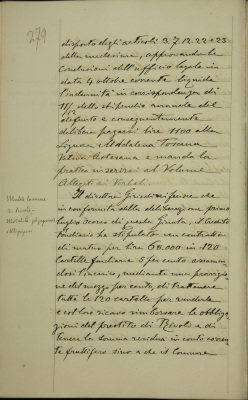 279
disposto degli articoli 3.7.12.22 e 23
della medesima, approvando le
conclusioni dell'ufficio legale in
data 4 ottobre corrente liquida
l'indennità in corrispondenza di
11/12 dello stipendio annuale del
defunto e conseguentemente
delibera pagarsi lire 1100 alla
Signora Maddalena Toscana
vedova e manda la
pratica in al Volume
Allegati ai Verbali.
Il direttore riferisce che
in conformità alla deliberazione presa
luglio scorso di questa Giunta, il Credito
fondiario ha stipulato un contratto
di mutuo per lire 60.000 in 120
cartelle fondiarie 5 per cento
dosi l'incarico, mediante una provvigione
del mezzo per cento, di trattenere
tutte le 120 cartelle per venderle
e col loro ricavo rimborsare le obbligazioni
del prestito di Rivoli e di
tenere la somma residua in conto corrente
fruttifero sino a che il Comune
Mutuo Comune
di Rivoli